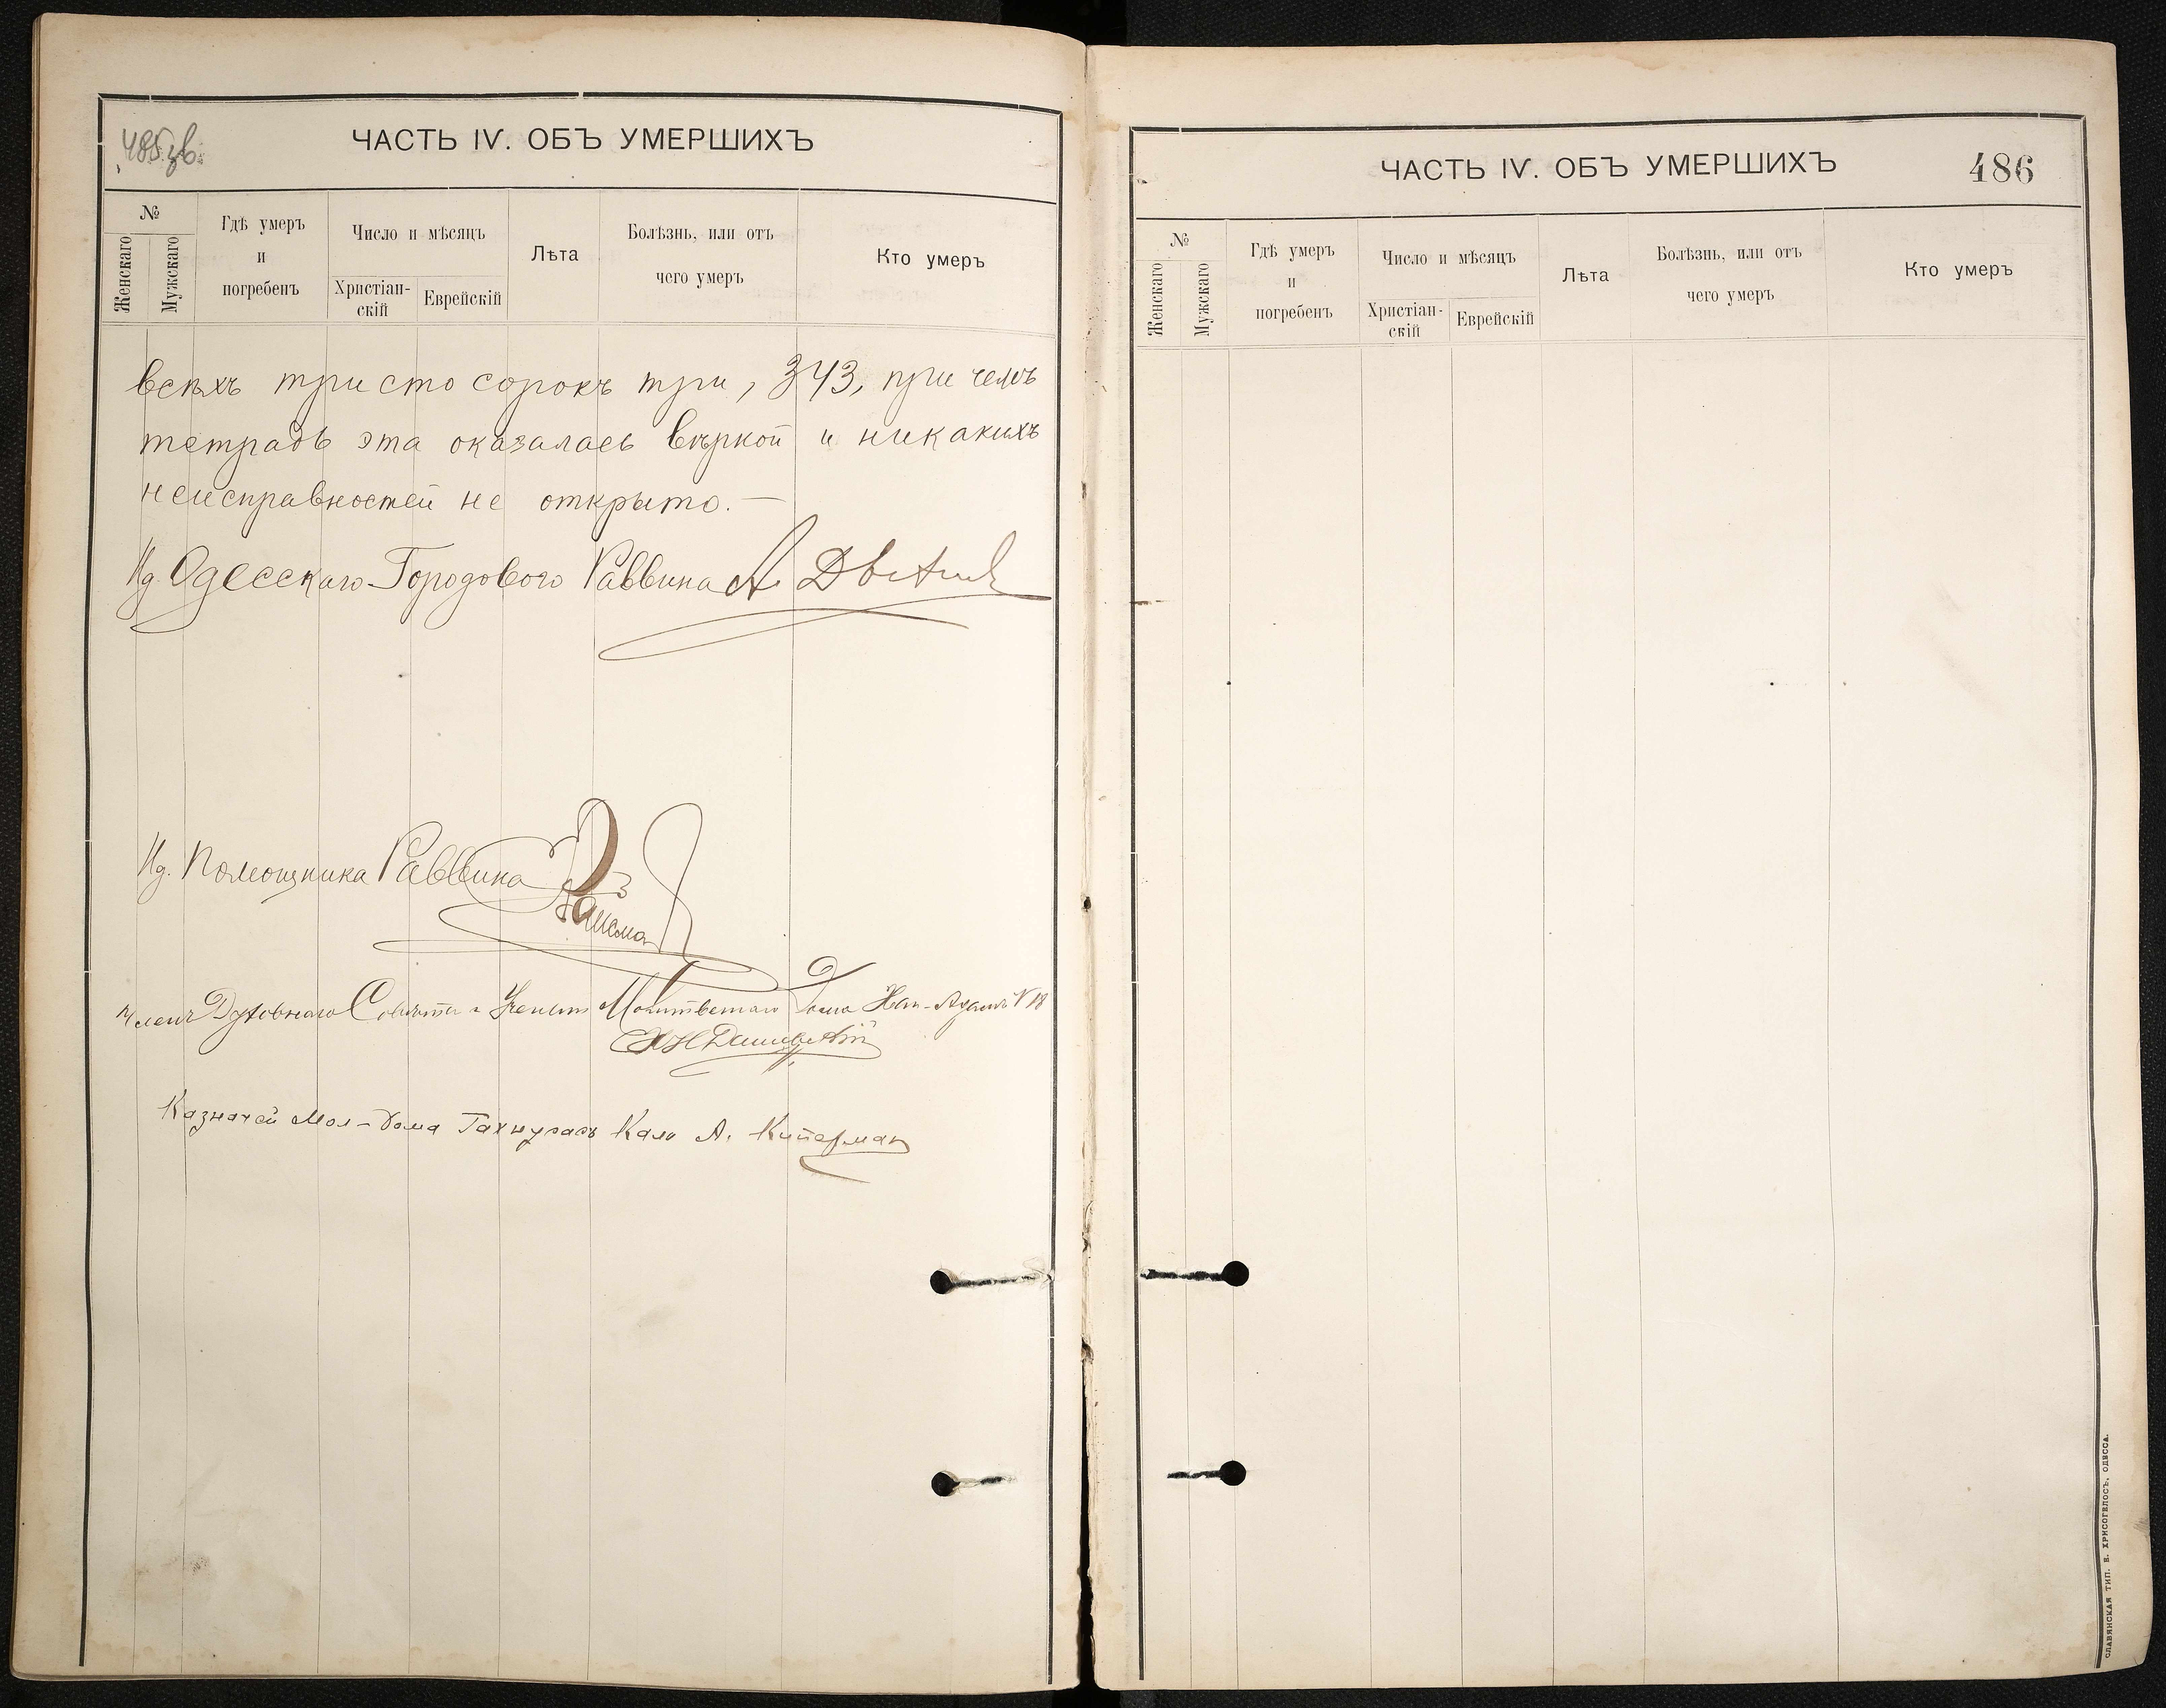 485 зв.
ЧАСТЬ IV. ОБЪ УМЕРШИХЪ
№
Женскаго
Мужскаго
Гдѣ умеръ
и
погребенъ
Число и мѣсяцъ
Христіан-
скій
Еврейскій
Лѣта
Болѣзнь, или отъ
чего умеръ
Кто умеръ
всѣхъ триста сорокъ три, 343, при чемъ
тетрадь эта оказалась вѣрной и никакихъ
неисправностей не открыто.—
Ид. Одесскаго Городового Раввина А
Ид. Помощника Раввина
Членъ Духовнаго Совѣта и Молитвеннаго Дома
Казначей Мол-дома А. Киперман
ЧАСТЬ IV. ОБЪ УМЕРШИХЪ
486
№
Женскаго
Мужскаго
Гдѣ умеръ
и
погребенъ
Число и мѣсяцъ
Христіан-
скій
Еврейскій
Лѣта
Болѣзнь, или отъ
чего умеръ
Кто умеръ
СЛАВЯНСКАЯ ТИП. Е. ХРИСОГЕЛОСЪ, ОДЕССА.